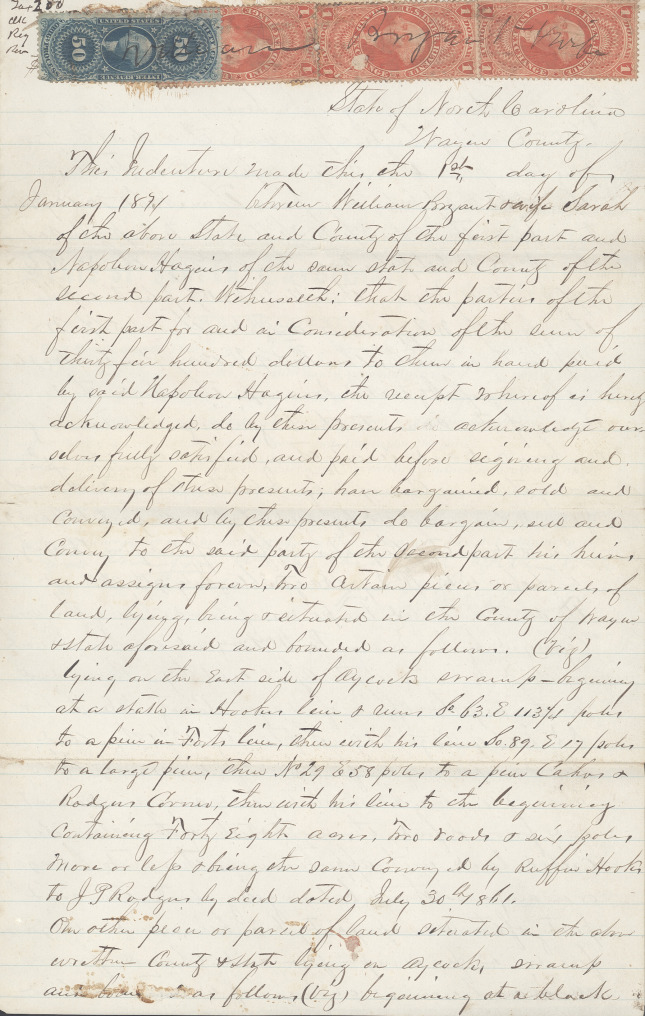 Tax 2 00
Clk
Reg
Rev
William Bryant
50 UNITED STATES 50
INTER. REVENUE
1 1 1 1 1
State of North Carolina
Wayne County.
This Indenture made this the 1st day of
January 1871 between William Bryant & wife Sarah
of the above State and County of the first part and
Napoleon Hagins of the same state and County of the
second part. Witnesseth; that the parties of the
first part for and in Consideration of the sum of
thirty five hundred dollars to them in hand paid
by said Napoleon Hagins, the receipt whereof is herey
acknowledged, do by these presents acknowledge our-
selves fully satisfied, and paid before signing and
delivery of these presents; han bargained, sold and
Conveyed, and by these presents do bargain, sell and
Convey to the said party of the second part his heirs
and assigns forever, Two Certain pieces or parcels of
land, lying, being & situated in the County of Wayne
& state aforesaid and bounded as follows. (Viz)
lying on the East side of Aycocks swamp – beginning
at a stake in Hooks line & runs So. 63. E 113¾ poles
to a pine in Forts line, then with his line So. 89. E 17 poles
to a large pine, then No 29 E 58 poles to a pine &
Rodgers Corner, then with his line to the beginning
Containing Forty Eight acres, Two roods & six poles
more or less & being the same Conveyed by Ruffin Hooks
to J P Rodgers by deed dated July 30th 1861.
One other piece or parcel of land situated in the above
written County & state lying on Aycocks, swamp
and as follows, (Viz) beginning at a black